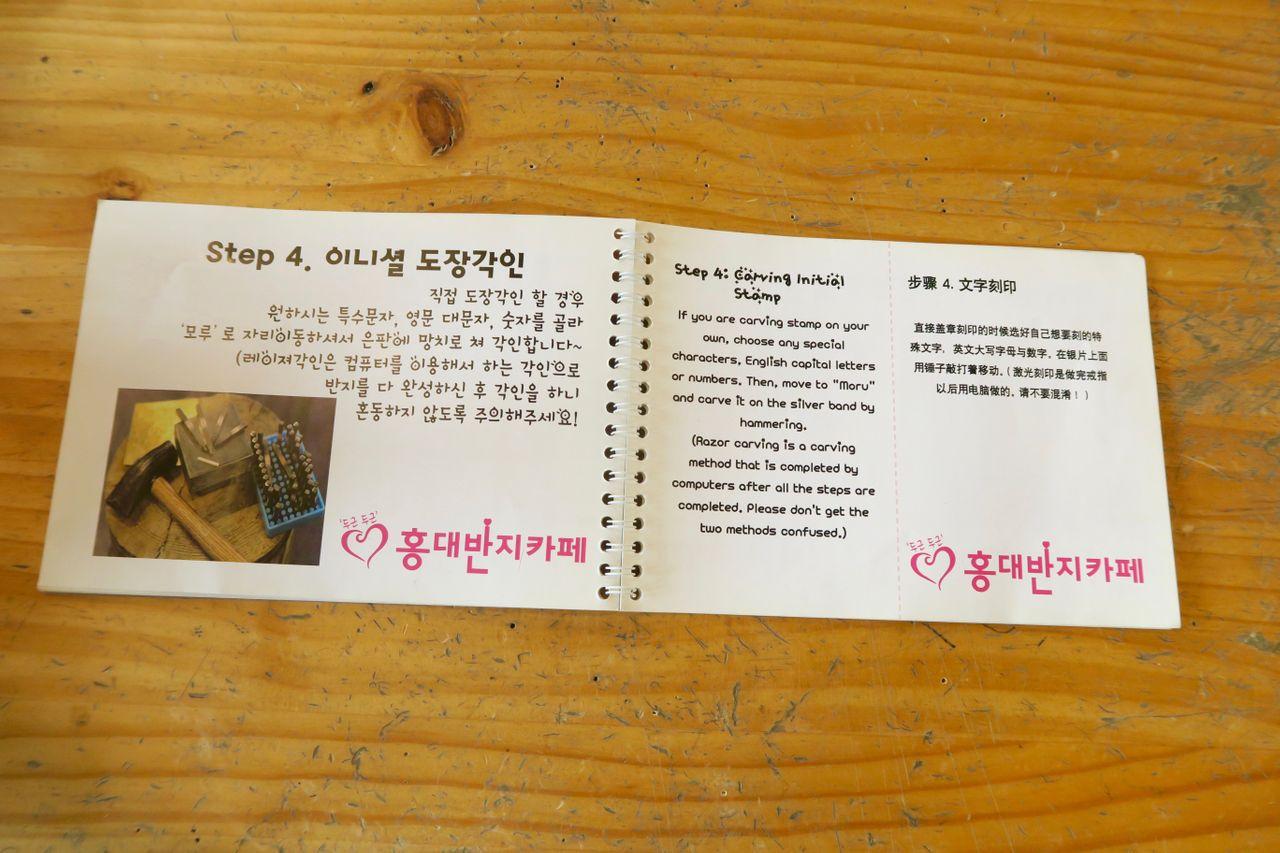 Step 4. 이니셜 도장각인
직접 도장각인 할 경우
원하시는 특수문자, 영문 대문자, 숫자를 골라
'모루' 로 자리이동하셔서 은판에 망치로 쳐 각인합니다~
(레이져각인은 컴퓨터를 이용해서 하는 각인으로
반지를 다 완성하신 후 각인을 하니
혼동하지 않도록 주의해주세요!
'두근 두근'
홍대반지카페
Step 4: Carving Initial
Stamp
If you are carving stamp on your
own, choose any special
characters, English capital letters
or numbers. Then, move to "Moru"
and carve it on the silver band by
hammering.
(Razor carving is a carving
method that is completed by
computers after all the steps are
completed. Please don't get the
two methods confused.)
步骤 4. 文字刻印
直接盖章刻印的时候选好自己想要刻的特
殊文字, 英文大写字母与数字, 在银片上面
用锤子敲打着移动。( 激光刻印是做完戒指
以后用电脑做的, 请不要混淆！ )
'두근 두근'
홍대반지카페